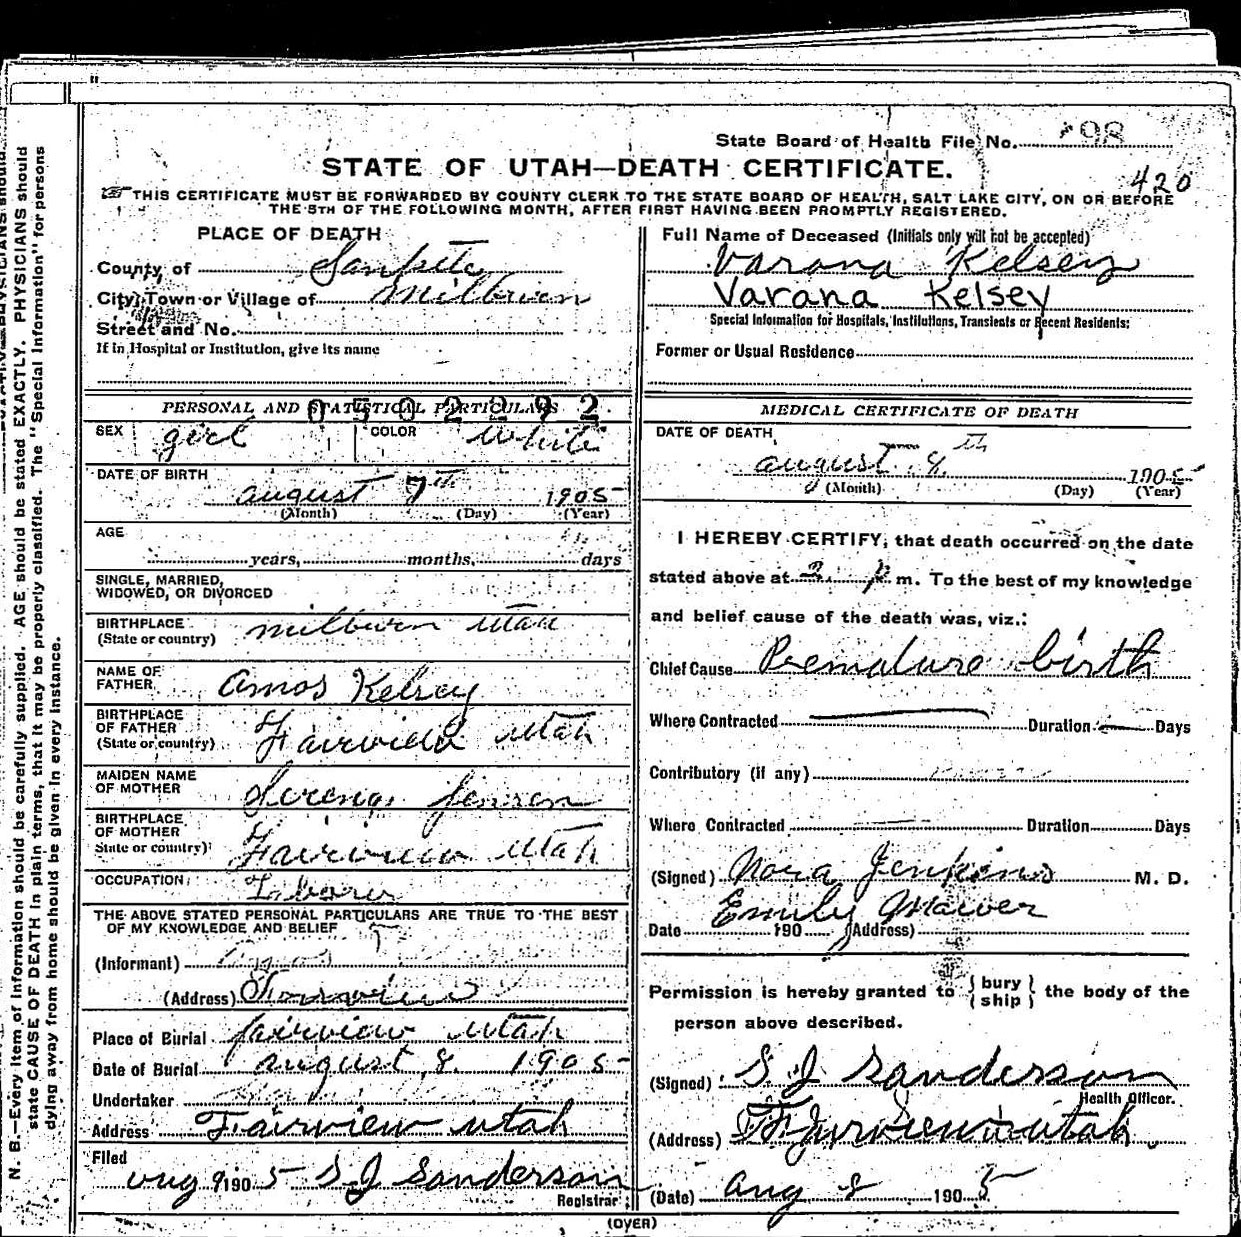 State Board of Health File No. 98
STATE OF UTAH—DEATH CERTIFICATE.
420
THIS CERTIFICATE MUST BE FORWARDED BY COUNTY CLERK TO THE STATE BOARD OF HEALTH, SALT LAKE CITY, ON OR BEFORE
THE 5TH OF THE FOLLOWING MONTH, AFTER FIRST HAVING BEEN PROMPTLY REGISTERED.
PLACE OF DEATH
County of Sanpete
City, Town or Village of Milburn
Street and No.
If in Hospital or Institution, give its name
Full Name of Deceased (Initials only will not be accepted)
Varana Kelsey
Varana Kelsey
Special Information for Hospitals, Institutions, Transients or Recent Residents:
Former or Usual Residence
PERSONAL AND STATISTICAL PARTICULARS
0502292
SEX girl COLOR White
DATE OF BIRTH
august 7th 1905
(Month) (Day) (Year)
AGE
years, months, days
SINGLE, MARRIED,
WIDOWED, OR DIVORCED
BIRTHPLACE
(State or country) milburn utah
NAME OF
FATHER amos Kelsey
BIRTHPLACE
OF FATHER
(State or country) Fairview utah
MAIDEN NAME
OF MOTHER Jensen
BIRTHPLACE
OF MOTHER
State or country) Fairview utah
OCCUPATION
THE ABOVE STATED PERSONAL PARTICULARS ARE TRUE TO THE BEST
OF MY KNOWLEDGE AND BELIEF
(Informant)
(Address) Fairview
Place of Burial fairview utah
Date of Burial august 8. 1905
Undertaker
Address Fairview utah
Filed
aug 9 1905 S J Sanderson
Registrar
MEDICAL CERTIFICATE OF DEATH
DATE OF DEATH
august 8th 1905
(Month) (Day) (Year)
I HEREBY CERTIFY, that death occurred on the date
stated above at 2 p m. To the best of my knowledge
and belief cause of the death was, viz.:
Chief Cause Premature birth
Where Contracted Duration Days
Contributory (if any)
Where Contracted Duration Days
(Signed) Nora Jenkins M. D.
Emily
Date 190 (Address)
Permission is hereby granted to {bury
ship} the body of the
person above described.
(Signed) S. J Sanderson
Health Officer.
(Address) Fairview utah
(Date) aug 8 1905
(OVER)
N. B.—Every item of information should be carefully supplied. AGE should be stated EXACTLY. PHYSICIANS should
state CAUSE OF DEATH in plain terms, that it may be properly classified. The "Special Information" for persons
dying away from home should be given in every instance.